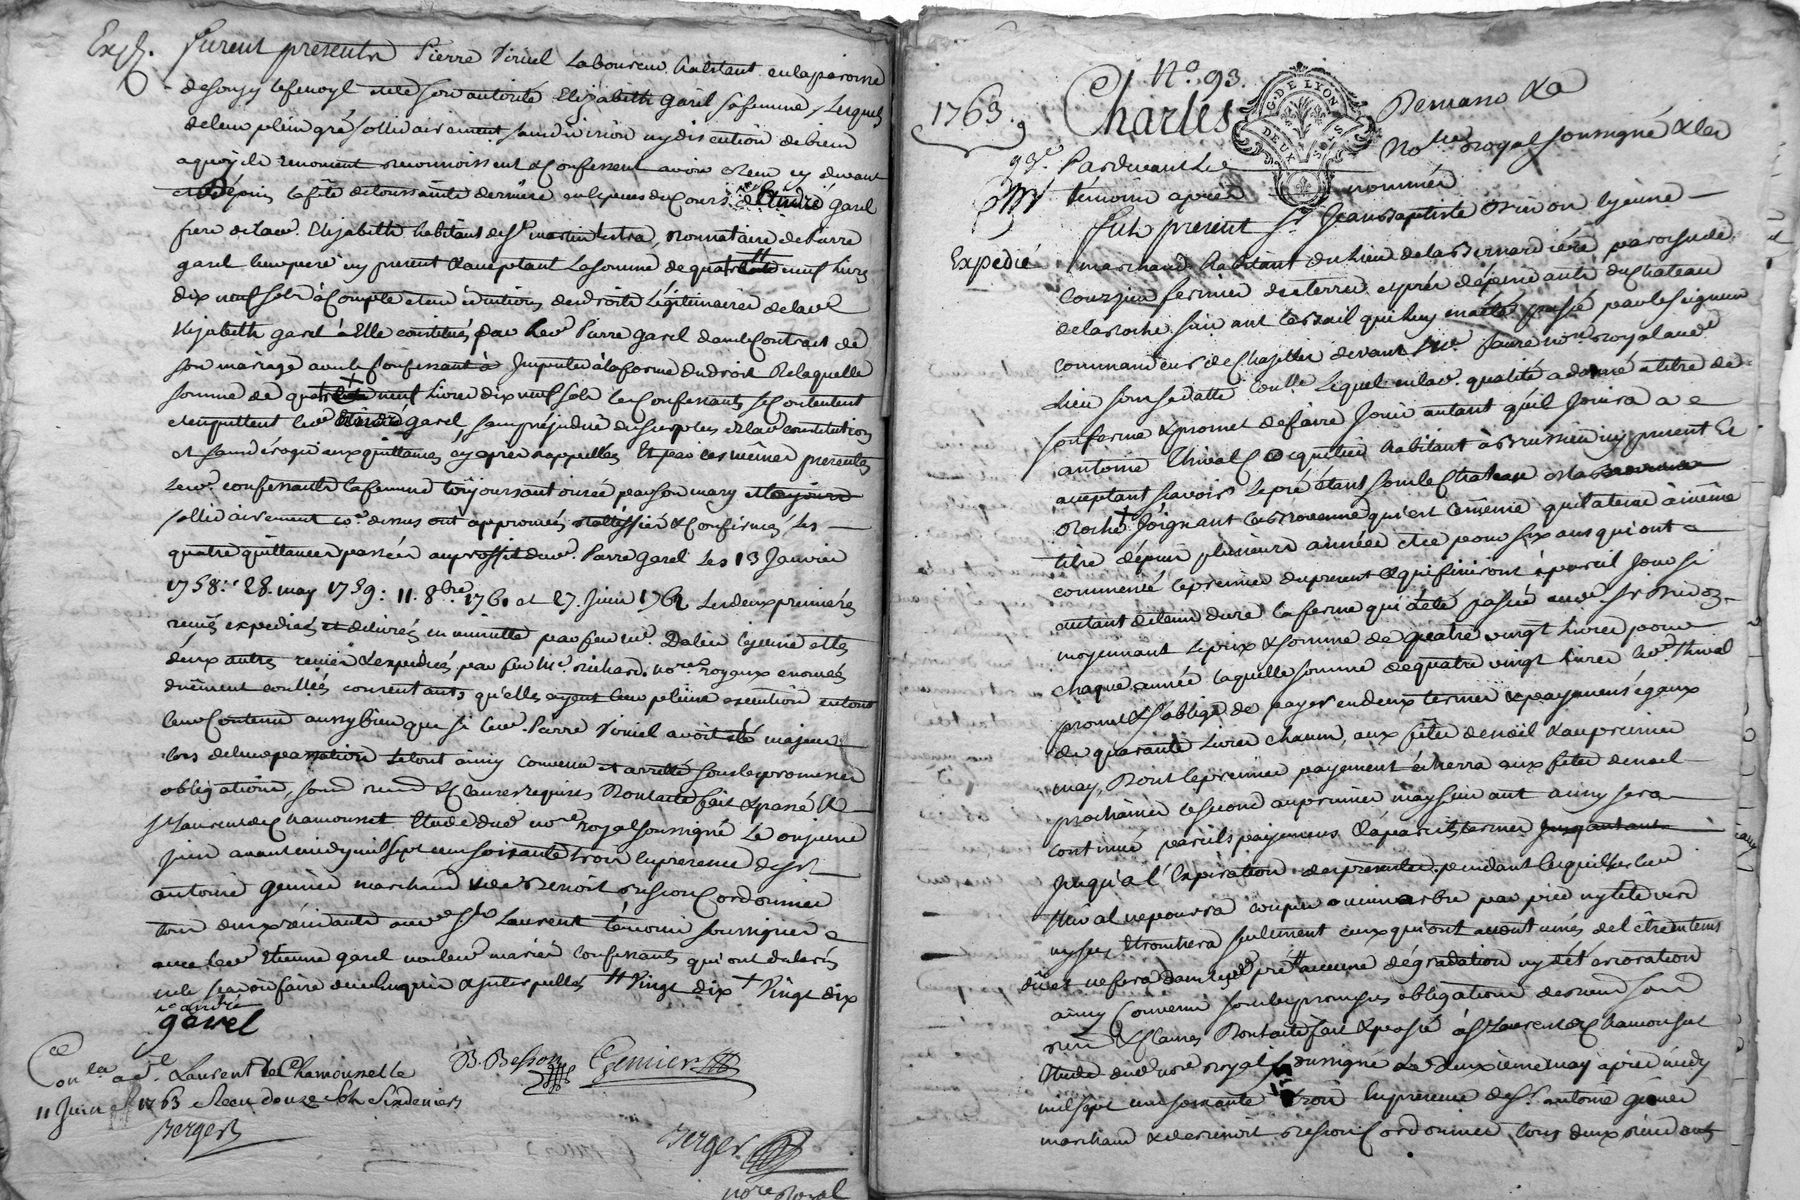 Exp.
furent presents Pierre Viriel Laboureur habitant en la paroisse
de Souzy Lefenoyl et de son autorité Elizabeth Garel sa femme, Lesquels
de leur plein gré sollidairement sans division ny discution de biens
a quoy ils renoncent reconnoissent & Confessent avoir Receu cy devant
et depuis la fête de toussaints derniere en Especes du Cours de André garel
frere de lad. Elizabeth habitant de St martin, donnataire de Pierre
garel leur pere icy present & acceptant La somme de quatre neuf livres
dix neuf sols à Compte et en déduction des droits Légitimaires de lad.
Elizabeth garel à Elle constitués par led. Pierre Garel dans le Contrat de
son mariage avec le Confessant à Imputer à la forme du droit De laquelle
somme de quatre neuf livres dix neuf sols les Confessants se Contentent
et en quittent led. André garel, sans préjudice du surplus de lad. constitution
et sans déroger aux quittances cy après rappellées Et par ces mêmes presentes
Lesd. confessants la femme toujours autorisée par son mary
sollidairement co. dessus ont approuvés & Confirmés Les
quatre quittances passées au proffit dud. Pierre Garel Les 13 Janvier
1758: 28. may 1759: 11. 8bre. 1761 et 27. Juin 1762 Les deux premieres
reçues expediées et delivrées en minutte par feu me. Dalier Lejeune et les
deux autres reçues & expediées par feu Me. Richard, nores. royaux
duement conllées consentants qu'elles ayent leur pleine execution en tout
leur Contenu aussy bien que si led. Pierre Viriel avoit été majeur
lors de leur passation Le tout ainsy convenu et arretté sous les promesses
obligations, soumissions & Clauses requises Dont acte fait & passé à
St Laurent de Chamousset Etude dud. nore. royal soussigné Le onzieme
Juin avant midy mil sept cent soixante trois En presence de Sr
antoine Gemier marchand & de Benoit Besson Cordonnier
tous deux residants aud. St. Laurent témoins soussignés
avec led. Etienne garel non lesd. mariés Confessants qui ont declarés
ne le sçavoir faire de ce Enquis & Interpellés # Vingt dix + Vingt dix
andré
garel
B. Besson Gemier
Conllé a St. Laurent de Chamousset le
11 Juin 1763 Receu douze Sols Six deniers
Berger
Berger
nore Royal
No. 93.
1763.
Charles Demano
G. DE LYON
DEUX SOLS
93e. Pardevant Le Notre. Royal soussigné & les
témoins après nommés
fut present Sr. Jean Baptiste Bridon lejeune
Expedié
marchand habitant du lieu de la Bernardiére paroisse de
Courzieu fermier des terres & prés dépendants du Chateau
de la Roche suivant le Bail qui luy en a été passé par le Seigneur
commandeur de Chazelles devant Me. faure nore. royal aud.
lieu sous sa datte conllé Lequel en lad. qualité a donné à titre de
sous ferme & promet de faire Jouir autant qu'il Jouira a
antoine Thival Coquetier habitant à Brussieu icy present Et
acceptant scavoir Le pré étant sous le Chateau de la
Roche + Joignant la Brevenne qui est le même qu'il tient à même
titre depuis plusieurs années et ce pour six ans qui ont
commencé le premier du present & qui finiront à pareil Jour si
autant de tems dure la ferme qui a été passée aud. Sr Bridon
moyennant Le prix & somme de quatre vingt livres pour
chaque année laquelle somme de quatre vingt livres led. Thival
promet & s'oblige de payer en deux termes & payemens égaux
de quarante Livres chacun, aux fêtes de noël & au premier
may, Dont le premier payement écherra aux fêtes de noel
prochaines le second au premier may suivant ainsy sera
continué pareils payemens & à pareils termes
Jusqu'à l'Expiration des presentes pendant lesquelles led.
Thival ne pourra couper aucun arbre par pied ny tête verd
ny sec, Etronchera seulement ceux qui ont accoutumés de l'être en tems
dû & ne fera dans led. pré # aucune dégradation ny déterioration
ainsy Convenu sous les promesses obligations
& Clauses Dont acte fait & passé à St Laurent de Chamousset
Etude dud. nore. royal soussigné Le deuxieme may après midy
mil sept cent soixante trois En presence de Sr. antoine gemier
marchand & de Benoit Besson Cordonnier tous deux residants